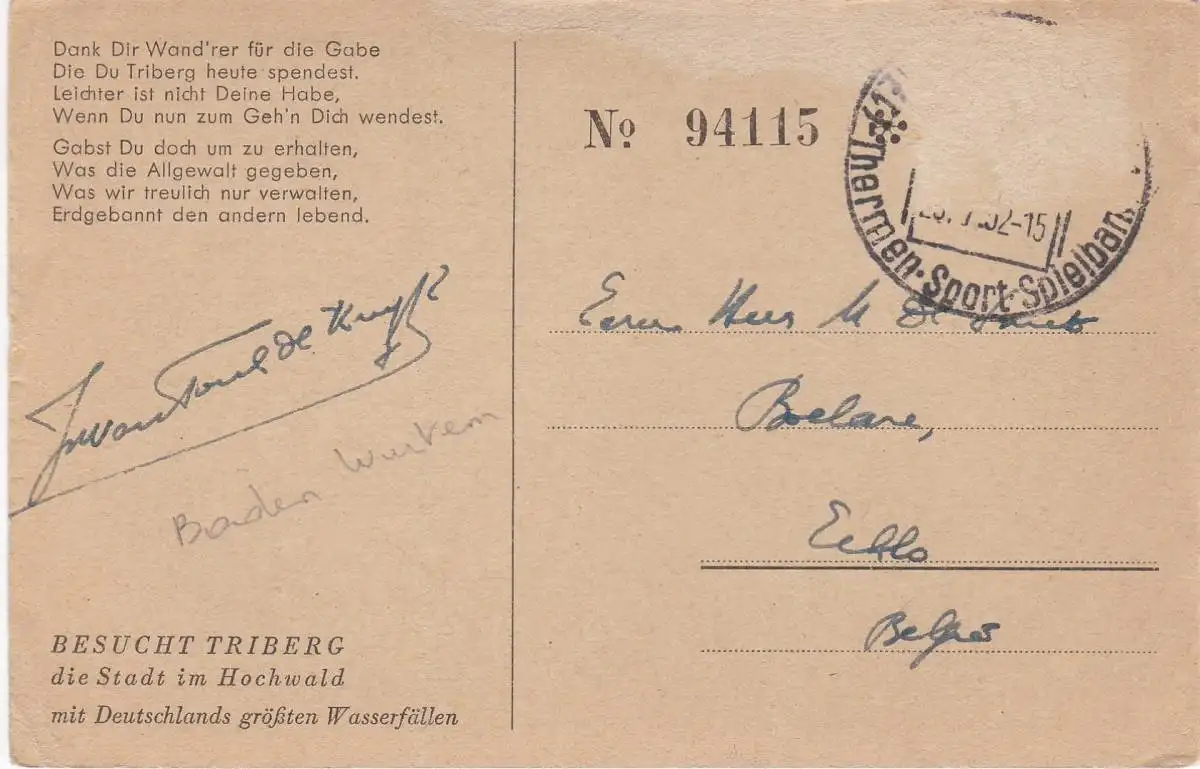 Dank Dir Wand'rer für die Gabe
Die Du Triberg heute spendest.
Leichter ist nicht Deine Habe,
Wenn Du nun zum Geh'n Dich wendest.
Gabst Du doch um zu erhalten,
Was die Allgewalt gegeben,
Was wir treulich nur verwalten,
Erdgebannt den andern lebend.
Baden Wurtem
BESUCHT TRIBERG
die Stadt im Hochwald
mit Deutschlands größten Wasserfällen
No 94115
52-15
Thermen-Sport-Spielban
Heer M De
Boelare,
Eeklo